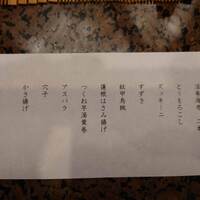 とうもろこし
ズッキーニ
すずき
紋甲烏賊
蓮根はさみ揚げ
つくね湯葉巻
アスパラ
穴子
かき揚げ